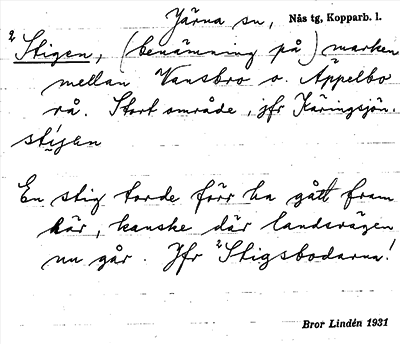 Järna sn, Nås tg, Kopparb. l.
²Stigen, (benämning på) marken
mellan Vansbro o. Äppelbo
rå. Stort område, jfr Käringsjön.
stigen
En stig torde förr ha gått fram
här, kanske där landsvägen
nu går. Jfr ²Stigsbodarna!
Bror Lindén 1931